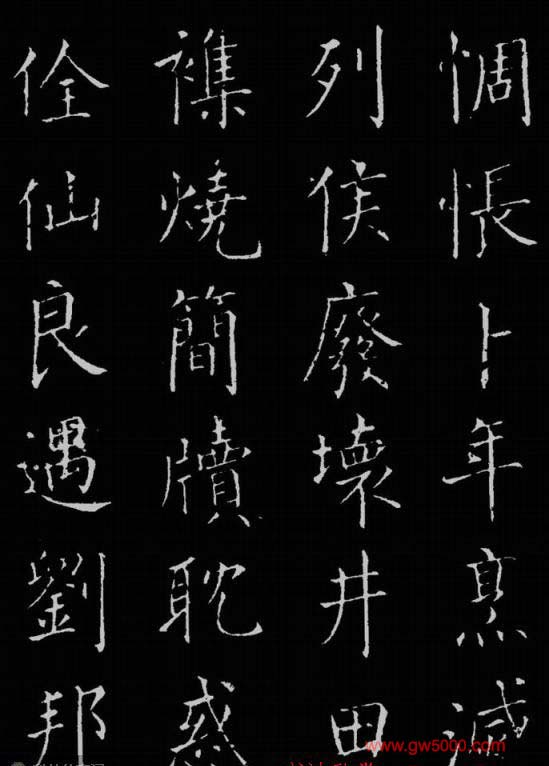 惆悵卜年烹滅
列侯廢壞井田
襍燒簡牘耽惑
佺仙良遇劉邦
www.gw5000.com